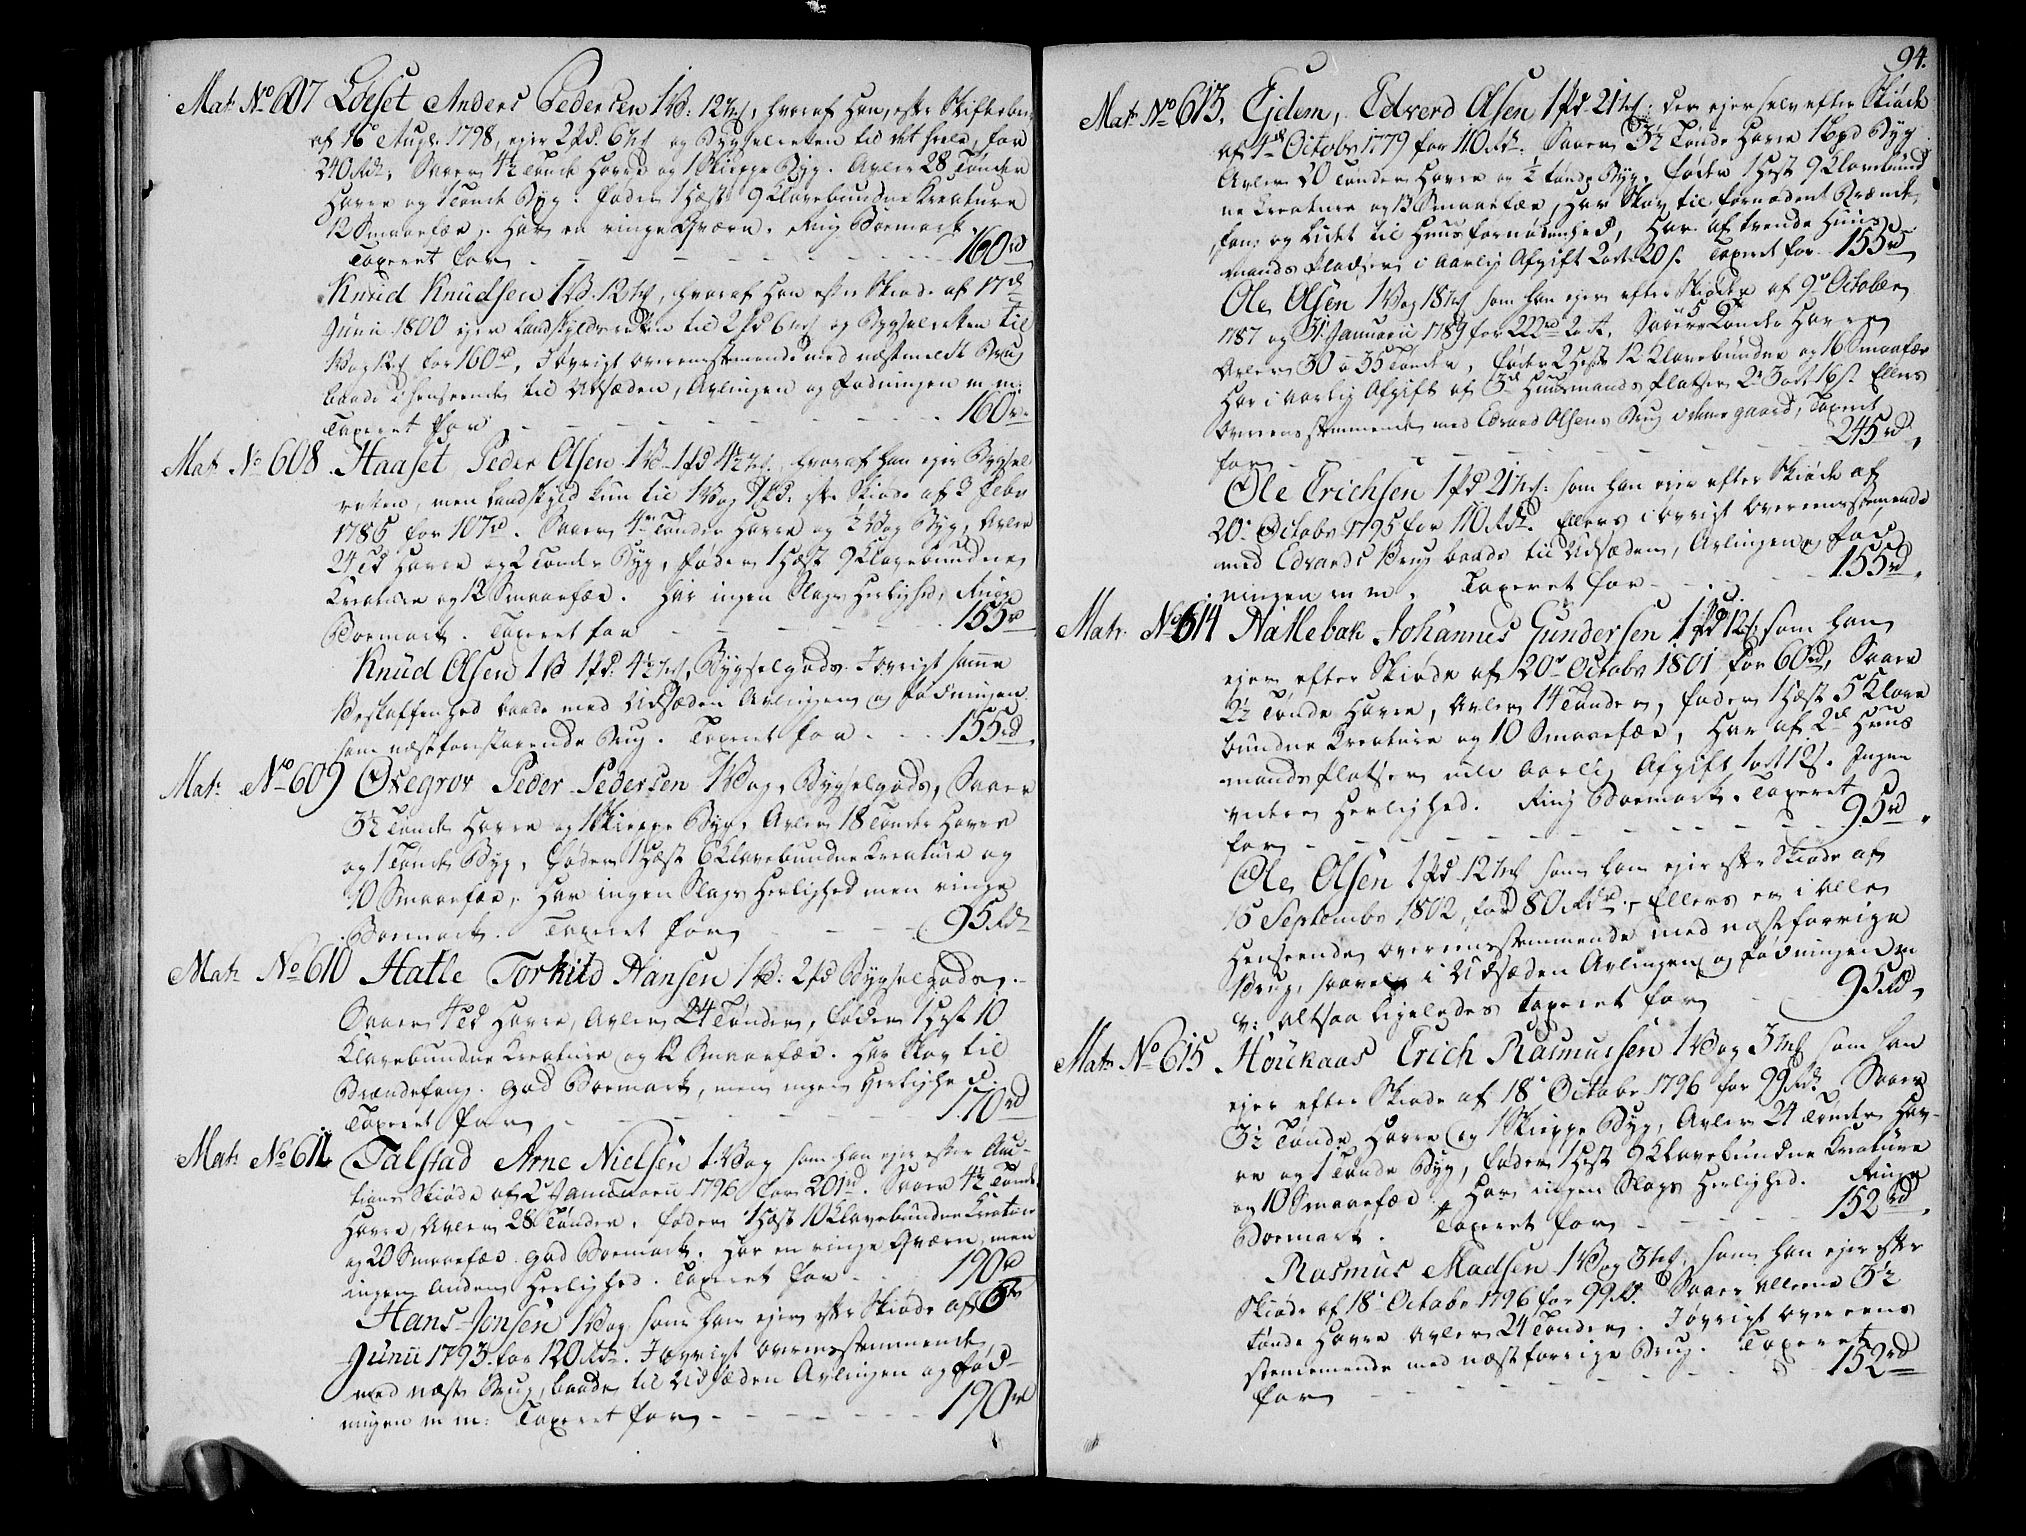 Mat. No 607 Loeset Anders Pedersen 1 V. 12 mk, hvoraf han, efter Skiftebrev
af 16 Aug. 1798, ejer 2 pd. 6 mk og Bygselretten til det heele, for
240 Rdr. Saaer 4½ Tønde Havre og 1 Skieppe Byg. Avler 28 Tønder
Havre og 1 Tønde Byg. føder 1 Hæst 9 Klavebundne Kreature
12 Smaafæe. Har en ringe Qværn. Ring Boemark.
Taxeret for - - - 160 rd
Knud Knudsen 1 V. 12 mk, hvoraf han efter Skiøde af 17de
Junii 1800 ejer Landskyldsretten til 2 Pd 6 mk og Bygselretten til
1 Vog 12 mk for 160 rd, I øvrigt overensstemmende med næstmeldte Brug
baade i henseende til Udsæden, Avlingen og fødningen m m:
Taxeret for - - - 160 rd
Mat. No 608 Haaset Peder Olsen 1 V 1 Pd 4½ mk, hvoraf han ejer Bygsel
retten, men Landskyld kun til 1 Vog 1 Pd: efter Skiøde af 3 Febr
1786 for 107 rd. Saaer 4re Tønder Havre og ½ Vog Byg, Avler
24 Td Havre og 2 Tønder Byg, føder 1 Hæst 9 Klavebundne
Kreature og 12 Smaafæe. Har ingen Slags Herlighed, Ringe
Boemark. Taxeret for - - - 155 rd
Knüd Olsen 1 V 1 Pd. 4½ mk, Bygselgods. I øvrigt samme
Beskaffenhed baade med Udsæden Avlingen og fødningen
som næstforestaaende Brug. Taxeret for - - - 155 rd.
Mat. No 609 Oxegrov Peder Pedersen 1 Vog, Bygselgods, Saaer
3½ Tønde Havre og 1 Skieppe Byg, Avler 18 Tønder Havre
og 1 Tønde Byg, føder 1 Hæst 6 Klavebundne Kreature og
10 Smaafæe. Har ingen Slags Herlighed men ringe
Boemark. Taxeret for - - - 95 Rdr
Mat. No 610 Hatle Torkild Hansen 1 V. 2 pd Bygselgods.
Saaer 4 Td Havre, Avler 24 Tønder, føder 1 Hest 10
Klavebundne Kreature og 12 Smaafæe. Har Skov til
Brændefang. god Boemark, men ingen Herlighed.
Taxeret for - - - 170 rd
Mat. No 611 Talstad Arne Nielsen 1 Vog som han ejer efter Auc-
tions Skiøde af 2 Januarii 1796 for 201 rd. Saaer 4½ Tønde
Havre, Avler 28 Tønder, føder 1 Hæst 10 Klavebundne Kreature
og 20 Smaafæe god Boemark. Har en ringe Qværn, men
ingen anden Herlighed. Taxeret for - 190 rd
Hans Jonsen 1 Vog som han ejer efter Skiøde af 6te
Junii 1793 for 120 Rdr. I øvrigt overensstemmende
med næste Brug, baade til Udsæden Avlingen og fød-
ningen m m: Taxeret for - - - 190 rd
94.
Mat. No 613. Ejdem, Edverd Olsen 1 Pd. 21 mk: der ejer selv efter Skiøde
af 4de Octobr 1779 for 110 Rdr. Saaer 3½ Tønde Havre 1 Spd Byg
Avler 20 Tønder Havre og ½ Tønde Byg, føder 1 Hest 9 Klavebund
ne Kreature og 13 Smaafæe, Har Skov til fornødent Brænde
fang og Lidet til Huusfornødenhed, Har af tvende Huus
mands pladser i aarlig Afgift 2 ort 20 s. Taxeret for 155 rd
Ole Olsen 1 Vog 18 mk som han ejer efter Skiøder af 9de October
1787 og 31 Januarii 1789 for 222 rd 2 ort. Saaer 5 a 6 Tønder Havre
Avler 30 a 35 Tønder, føder 2 Heste 12 Klavebundne og 16 Smaafæe
Har i aarlig Afgift af 3de Huusmands Pladser 2 rd 3 ort 16 s. Ellers
overensstemmende med Edvard Olsens Brug i denne gaard, Taxeret
for - - - 245 rd.
Ole Erichsen 1 Pd 21 mk: som han ejer efter Skiøde af
20. Octobr 1795 for 110 Rdr. Ellers i øvrigt overensstemmende
med Edvards Brug baade til Udsæden, Avlingen og fød
ningen m m. Taxeret for - - - 155 rd.
Mat. No 614 Hatlebak Johannes Gundersen 1 Pd 12 mk: som han
ejer efter Skiøde af 20de Octobr 1801 for 60 rd, Saaer
2½ Tønde Havre, Avler 14 Tønder, føder 1 Hæst 5 Klave
bundne Kreature og 10 Smaafæe, Har af 2de Huus
mandspladser udi Aarlig Afgift 1 ort 12 s. Ingen
videre Herlighed. Ring Boemark. Taxeret
for - - - 95 rd.
Ole Olsen 1 Pd 12 mk som han ejer efter Skiøde af
16 Septembr 1802, for 80 Rdr. Ellers er i Alle
Henseender overensstemmende med næstforrige
Brug, saavel i Udsæden Avlingen og fødningen m
v: Altsaa ligeledes taxeret for 95 Rd.
Mat. No 615 Houkaas Erich Rasmussen 1 Vog 3 mk som han
ejer efter Skiøde af 18de Octobr 1796 for 99 Rdr. Saaer
3½ Tønde Havre og 1 Skieppe Byg, Avler 24 Tønder Hav-
re og 1 Tønde Byg, føder 1 Hest 9 Klavebundne Kreature
og 10 Smaafæe. Har ingen Slags Herlighed. Ringe
Boemark. Taxeret for - - - 152 rd.
Rasmus Madsen 1 Vog 3 mk, som han ejer efter
Skiøde af 18de Octobr 1796 for 99 Rdr. Saaer allene 3½
Tønde Havre avler 24 Tønder. I øvrigt overeens
stemmende med næstforrige Brug. Taxeret
for - - - 152 rd